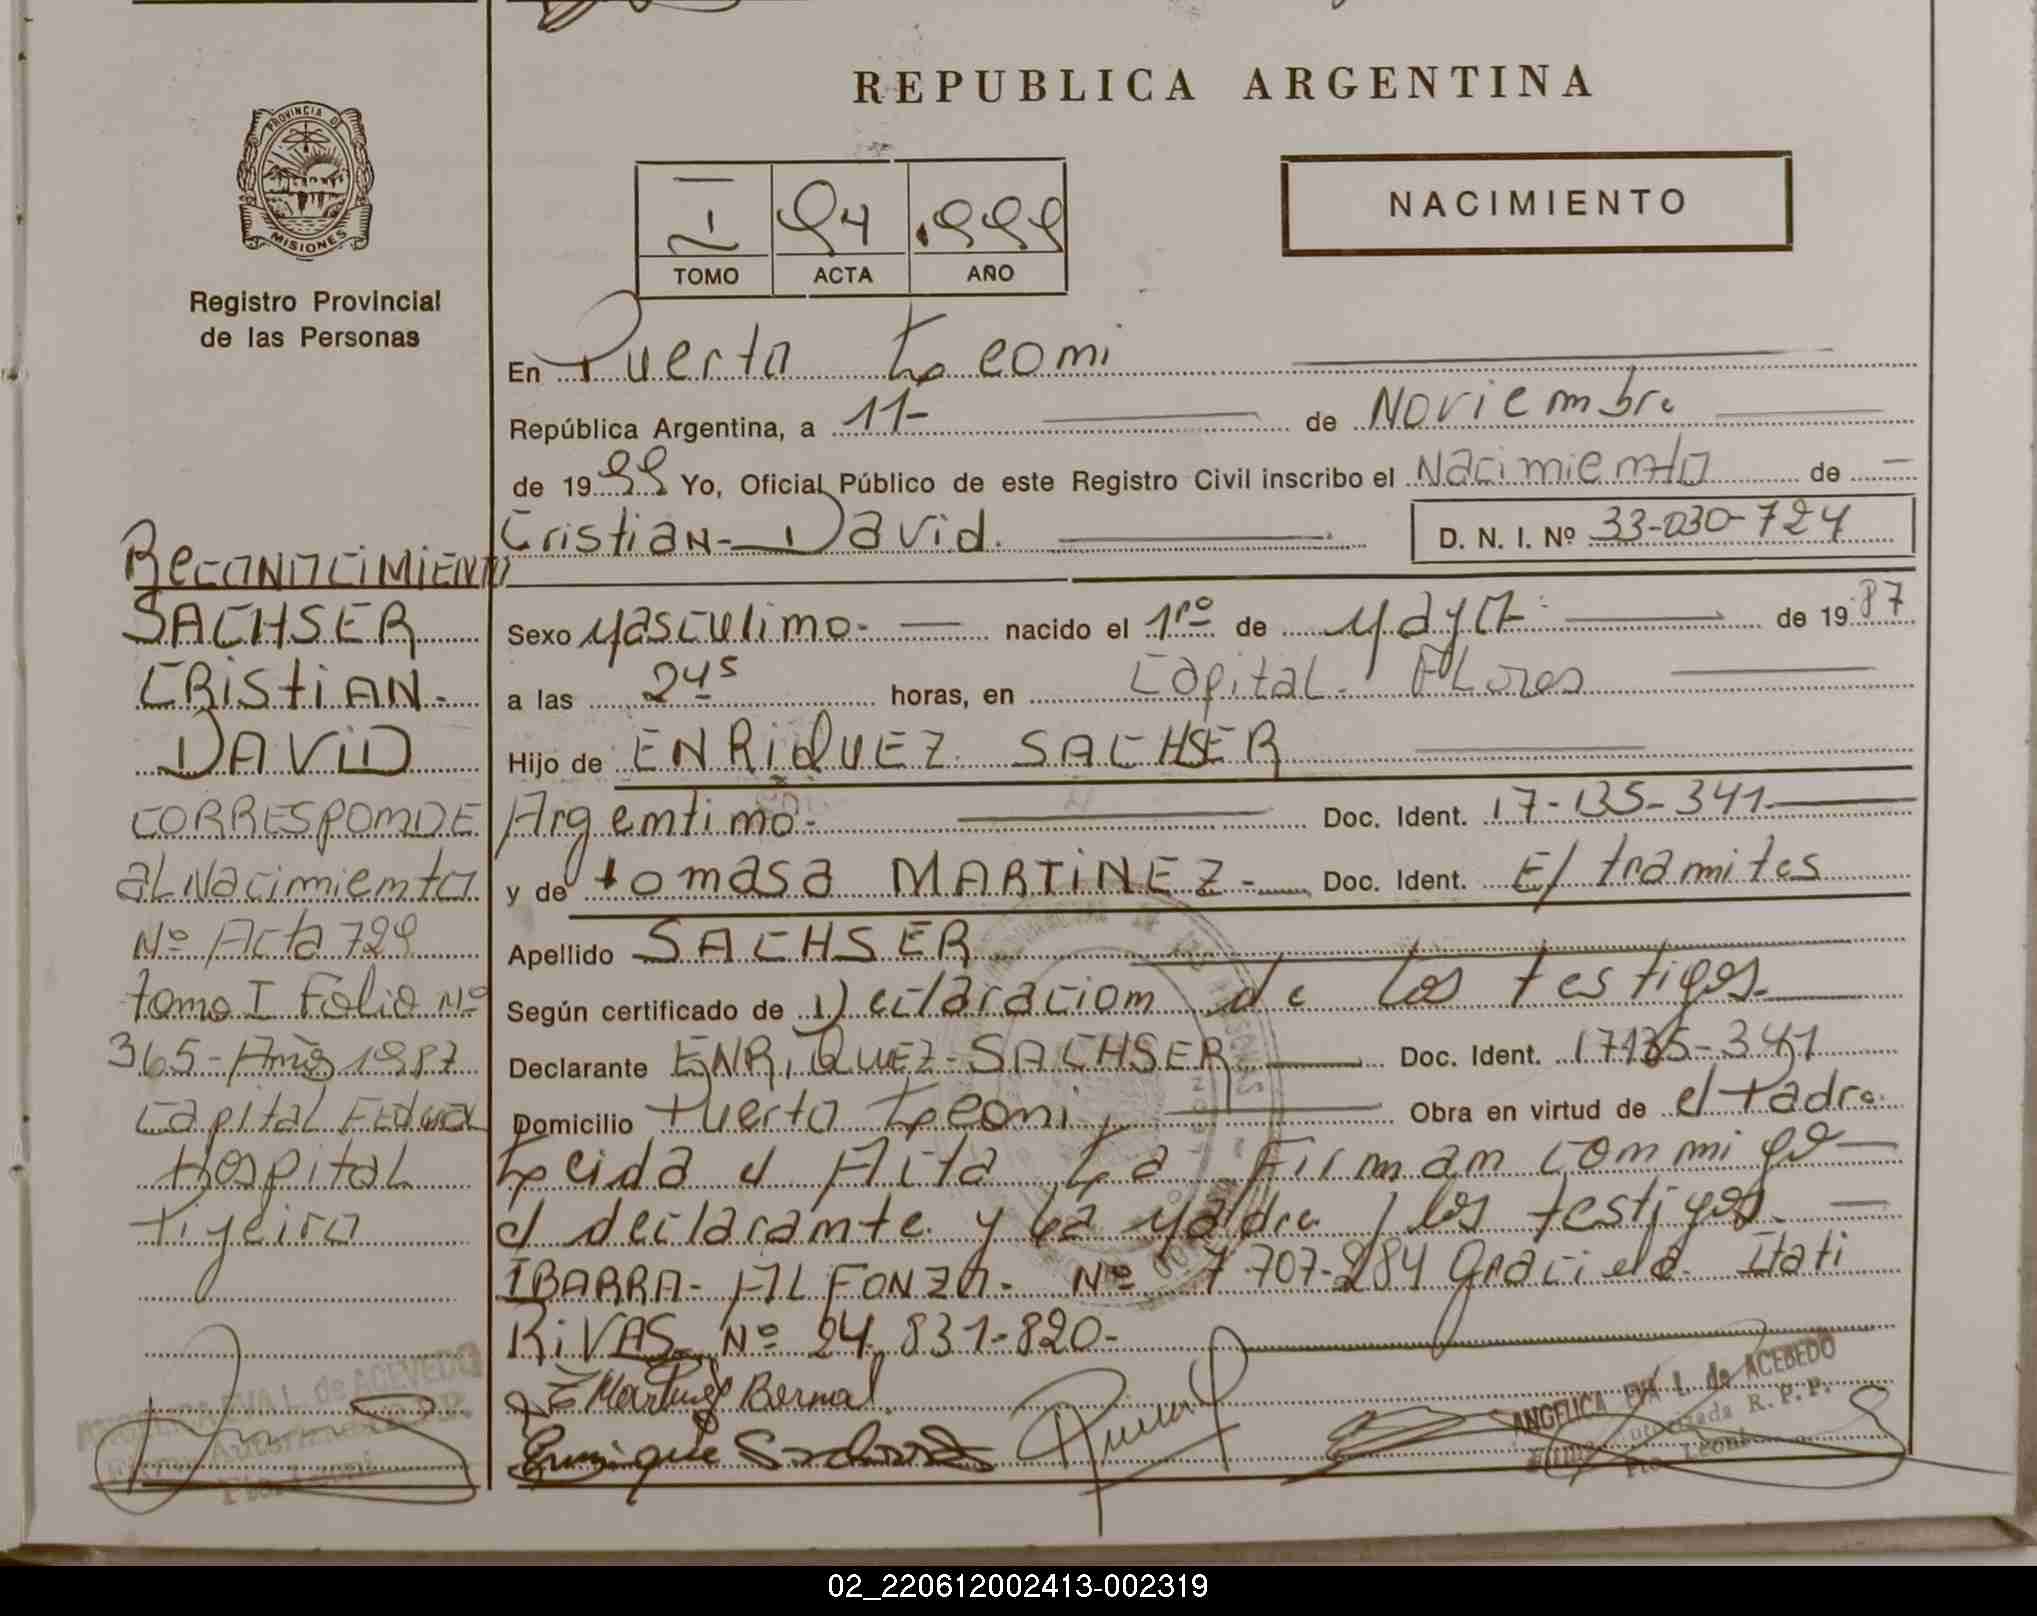 REPUBLICA ARGENTINA
PROVINCIA DE
MISIONES
Registro Provincial
de las Personas
I
94 1999
TOMO ACTA AÑO
NACIMIENTO
En Puerto Leoni
República Argentina, a 11- de Noviembre
de 1999 Yo, Oficial Público de este Registro Civil inscribo el Nacimiento de
Cristian- David. D. N. I. Nº 33-030-724
Sexo Masculino- nacido el 1rº de Mayo de 1987
a las 24s horas, en Capital- Flores
Hijo de ENRIQUEZ SACHSER
Argentino- Doc. Ident. 17-135-341
y de tomasa MARTINEZ- Doc. Ident. E/ tramites
Apellido SACHSER
Según certificado de Declaracion de Los testigos-
Declarante ENRIQUEZ-SACHSER Doc. Ident. 17135-341
Domicilio Puerto Leoni, Obra en virtud de el Padre
Leida el Acta La Firman conmigo
el declarante y La Madre / los testigos-
IBARRA- ALFONZO- Nº 7707-284 Graciela Itati
RIVAS- Nº 24.831-820-
Martinez Bernal
Enrique
ANGELICA EVA L. de ACEBEDO
Firma Autorizada R. P. P.
Pto. Leoni
RECONOCIMIENTO
SACHSER
CRISTIAN-
DAVID
CORRESPONDE
al Nacimiento
Nº Acta 729
tomo I Folio Nº
365-Año 1987
Capital Federal
Hospital
Piñeiro
EVA L. de ACEVEDO
02_220612002413-002319